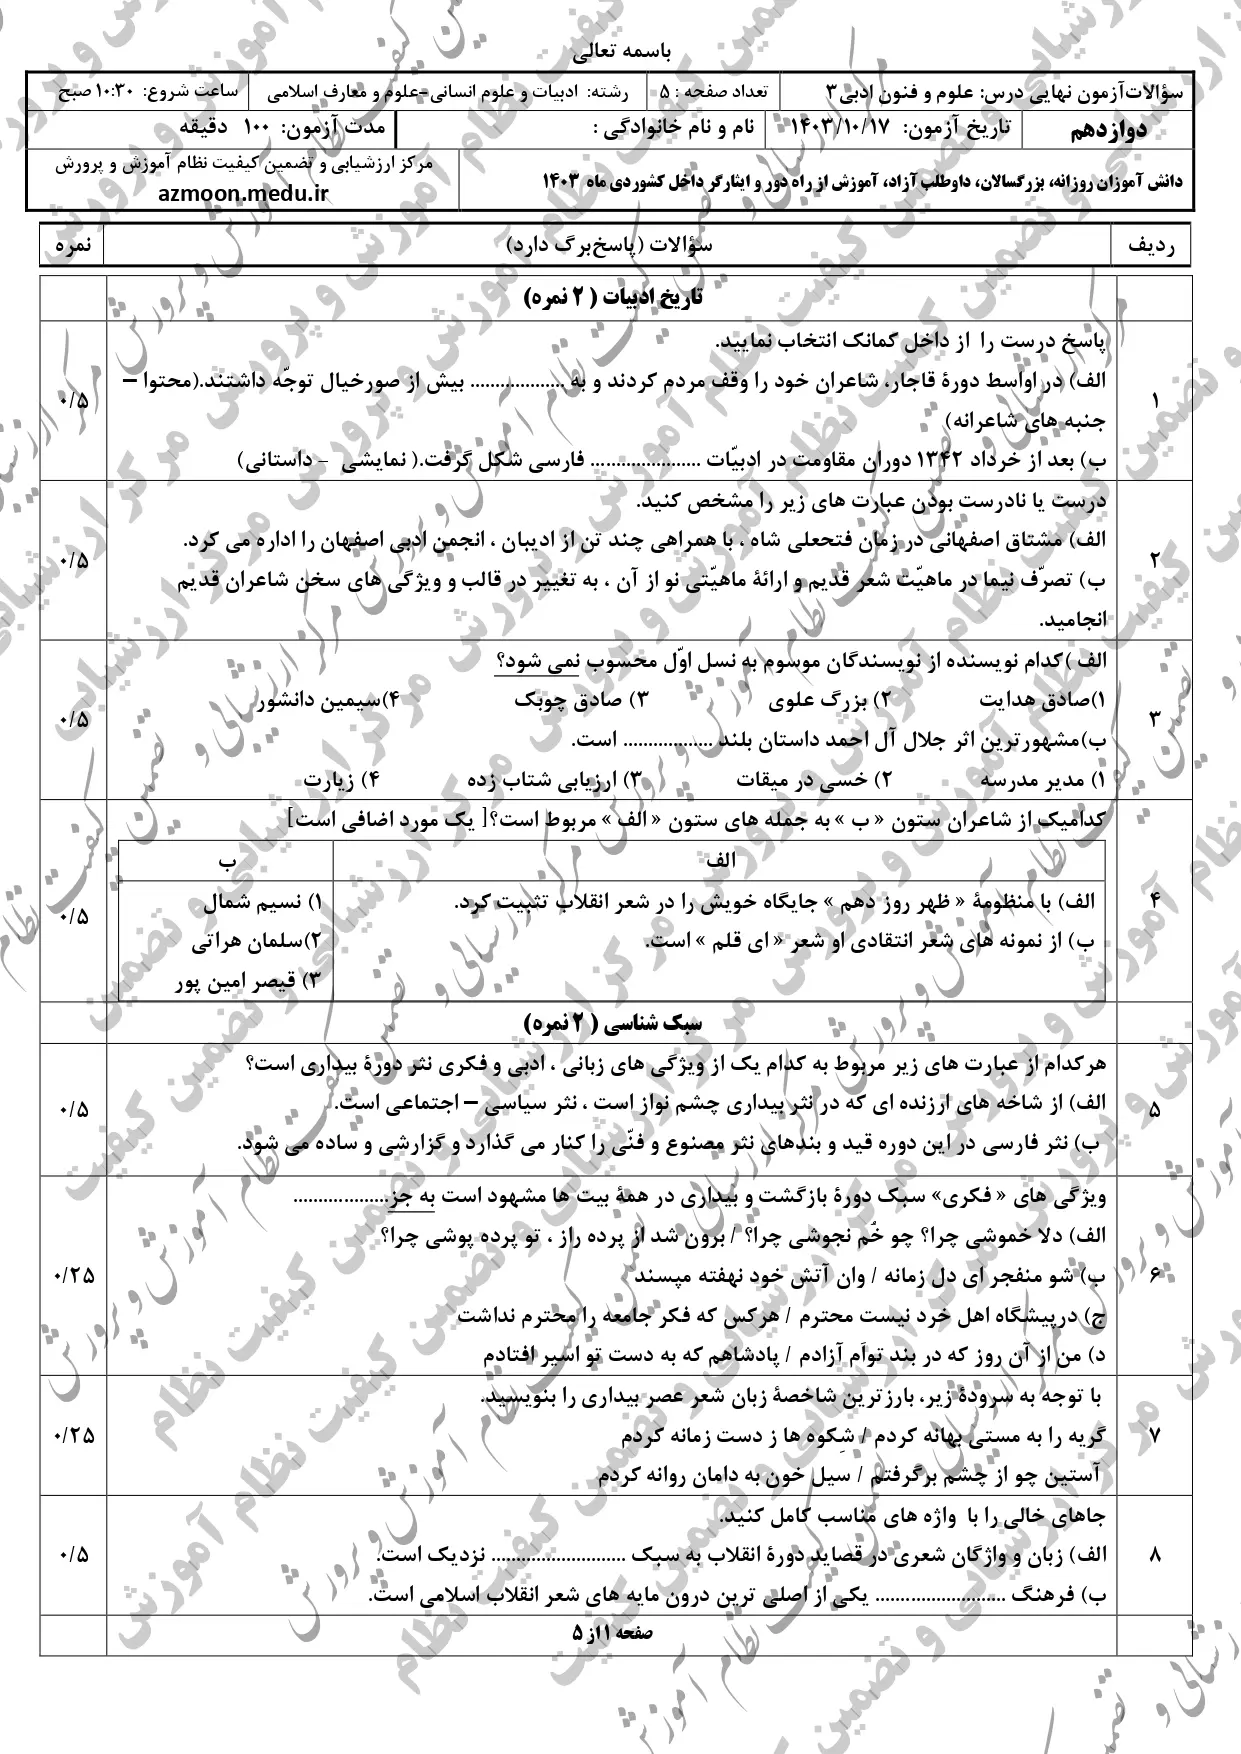 باسمه تعالی
سؤالات آزمون نهایی درس: علوم و فنون ادبی۳ تعداد صفحه : ۵ رشته: ادبیات و علوم انسانی-علوم و معارف اسلامی ساعت شروع: ۱۰:۳۰ صبح
دوازدهم تاریخ آزمون: ۱۴۰۳/۱۰/۱۷ نام و نام خانوادگی : مدت آزمون: ۱۰۰ دقیقه
دانش آموزان روزانه، بزرگسالان، داوطلب آزاد، آموزش از راه دور و ایثارگر داخل کشور دی ماه ۱۴۰۳ مرکز ارزشیابی و تضمین کیفیت نظام آموزش و پرورش
azmoon.medu.ir
ردیف سؤالات (پاسخ‌برگ دارد) نمره
تاریخ ادبیات ( ۲ نمره)
۱ پاسخ درست را از داخل کمانک انتخاب نمایید. ۰/۵
الف) در اواسط دورهٔ قاجار، شاعران خود را وقف مردم کردند و به ................... بیش از صورخیال توجّه داشتند.(محتوا – جنبه های شاعرانه)
ب) بعد از خرداد ۱۳۴۲ دوران مقاومت در ادبیّات ...................... فارسی شکل گرفت.( نمایشی – داستانی)
۲ درست یا نادرست بودن عبارت های زیر را مشخص کنید. ۰/۵
الف) مشتاق اصفهانی در زمان فتحعلی شاه ، با همراهی چند تن از ادیبان ، انجمن ادبی اصفهان را اداره می کرد.
ب) تصرّف نیما در ماهیّت شعر قدیم و ارائهٔ ماهیّتی نو از آن ، به تغییر در قالب و ویژگی های سخن شاعران قدیم
انجامید.
۳ الف )کدام نویسنده از نویسندگان موسوم به نسل اوّل محسوب نمی شود؟ ۰/۵
۱)صادق هدایت ۲) بزرگ علوی ۳) صادق چوبک ۴)سیمین دانشور
ب)مشهورترین اثر جلال آل احمد داستان بلند .................. است.
۱) مدیر مدرسه ۲) خسی در میقات ۳) ارزیابی شتاب زده ۴) زیارت
۴ کدامیک از شاعران ستون « ب » به جمله های ستون « الف » مربوط است؟[ یک مورد اضافی است] ۰/۵
الف ب
الف) با منظومهٔ « ظهر روز دهم » جایگاه خویش را در شعر انقلاب تثبیت کرد. ۱) نسیم شمال
ب) از نمونه های شعر انتقادی او شعر « ای قلم » است. ۲)سلمان هراتی
۳) قیصر امین پور
سبک شناسی ( ۲ نمره)
۵ هرکدام از عبارت های زیر مربوط به کدام یک از ویژگی های زبانی ، ادبی و فکری نثر دورهٔ بیداری است؟ ۰/۵
الف) از شاخه های ارزنده ای که در نثر بیداری چشم نواز است ، نثر سیاسی – اجتماعی است.
ب) نثر فارسی در این دوره قید و بندهای نثر مصنوع و فنّی را کنار می گذارد و گزارشی و ساده می شود.
۶ ویژگی های « فکری» سبک دورهٔ بازگشت و بیداری در همهٔ بیت ها مشهود است به جز................... ۰/۲۵
الف) دلا خموشی چرا؟ چو خُم نجوشی چرا؟ / برون شد از پرده راز ، تو پرده پوشی چرا؟
ب) شو منفجر ای دل زمانه / وان آتش خود نهفته مپسند
ج) درپیشگاه اهل خرد نیست محترم / هرکس که فکر جامعه را محترم نداشت
د) من از آن روز که در بند تواَم آزادم / پادشاهم که به دست تو اسیر افتادم
۷ با توجه به سرودهٔ زیر، بارزترین شاخصهٔ زبان شعر عصر بیداری را بنویسید. ۰/۲۵
گریه را به مستی بهانه کردم / شِکوه ها ز دست زمانه کردم
آستین چو از چشم برگرفتم / سیل خون به دامان روانه کردم
۸ جاهای خالی را با واژه های مناسب کامل کنید. ۰/۵
الف) زبان و واژگان شعری در قصاید دورهٔ انقلاب به سبک ........................... نزدیک است.
ب) فرهنگ .......................... یکی از اصلی ترین درون مایه های شعر انقلاب اسلامی است.
صفحه ۱ از ۵
مرکز ارزشیابی و تضمین کیفیت نظام آموزش و پرورش